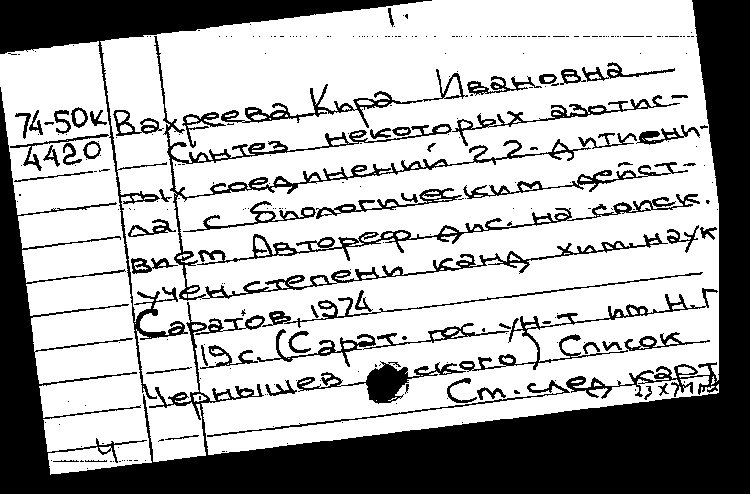 1.
74-50к Вахреева, Кира Ивановна
4420 Синтез некоторых азотис-
тых соединений 2,2-дитиени-
ла с биологическим дейст-
вием. Автореф. дис. на соиск.
учен. степени канд хим. наук
Саратов, 1974.
19 с. (Сарат. гос. ун-т им. Н.Г
Чернышев ского) Список
См. след. карт
4